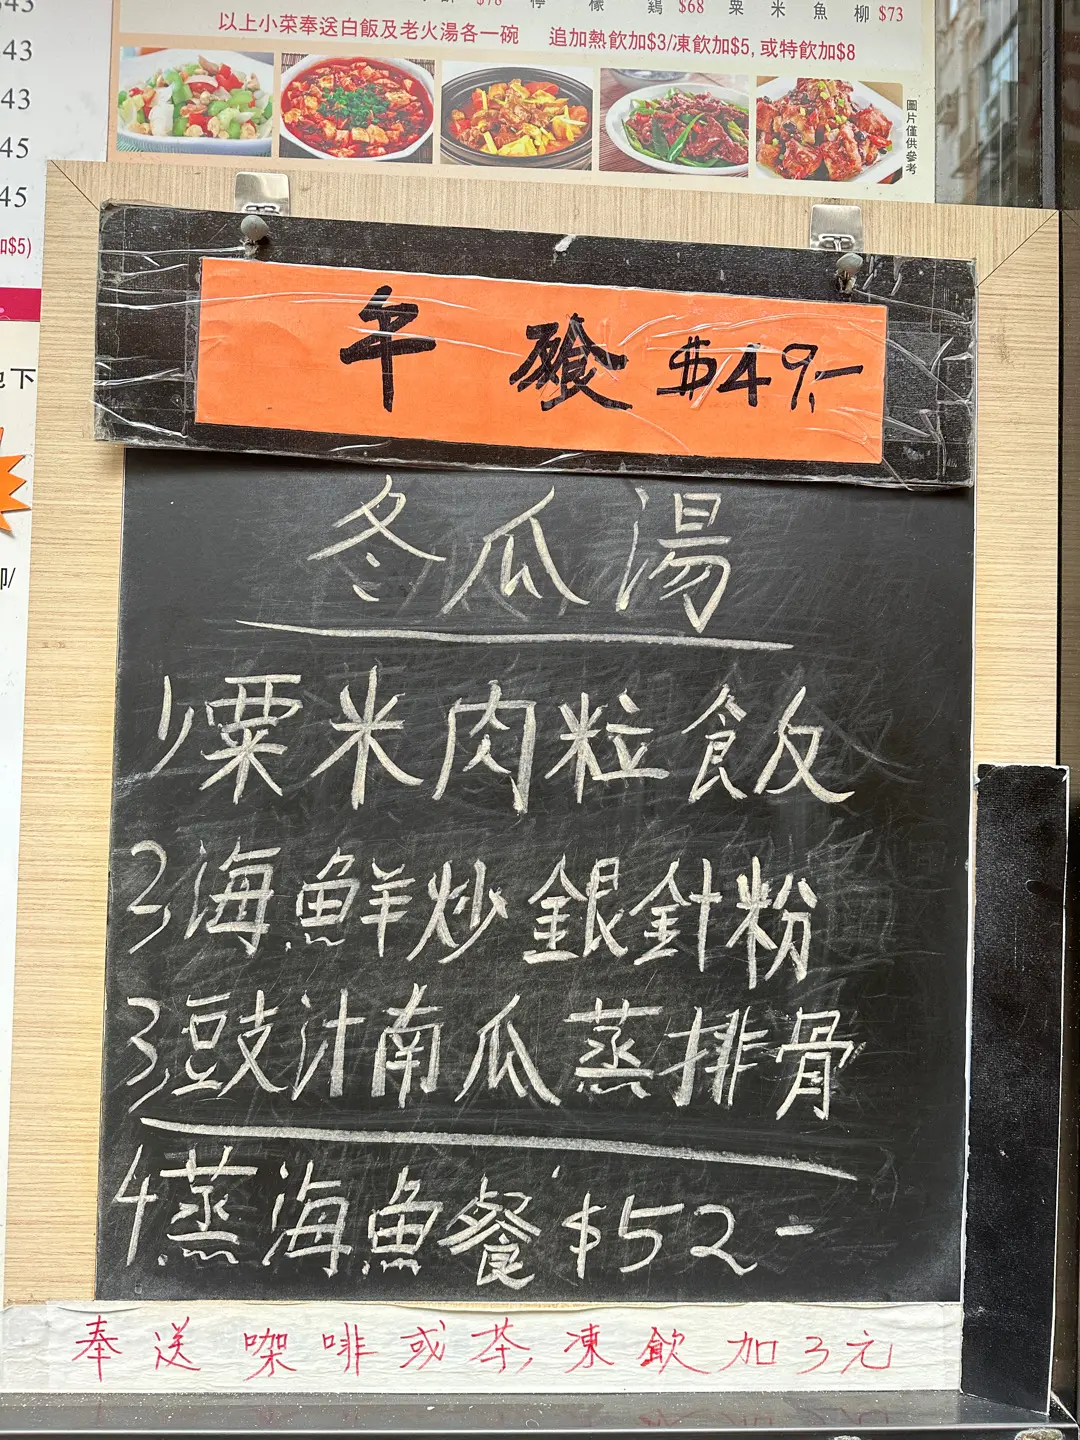 $43
43
43
45
45
加$5)
$78 檸檬鷄$68 粟米魚柳$73
以上小菜奉送白飯及老火湯各一碗 追加熱飲加$3/凍飲加$5,或特飲加$8
圖片僅供參考
地下
午餐 $49.-
冬瓜湯
1,粟米肉粒飯
2,海鮮炒銀針粉
3,豉汁南瓜蒸排骨
4.蒸海魚餐 $52-
奉送咖啡或茶,凍飲加3元